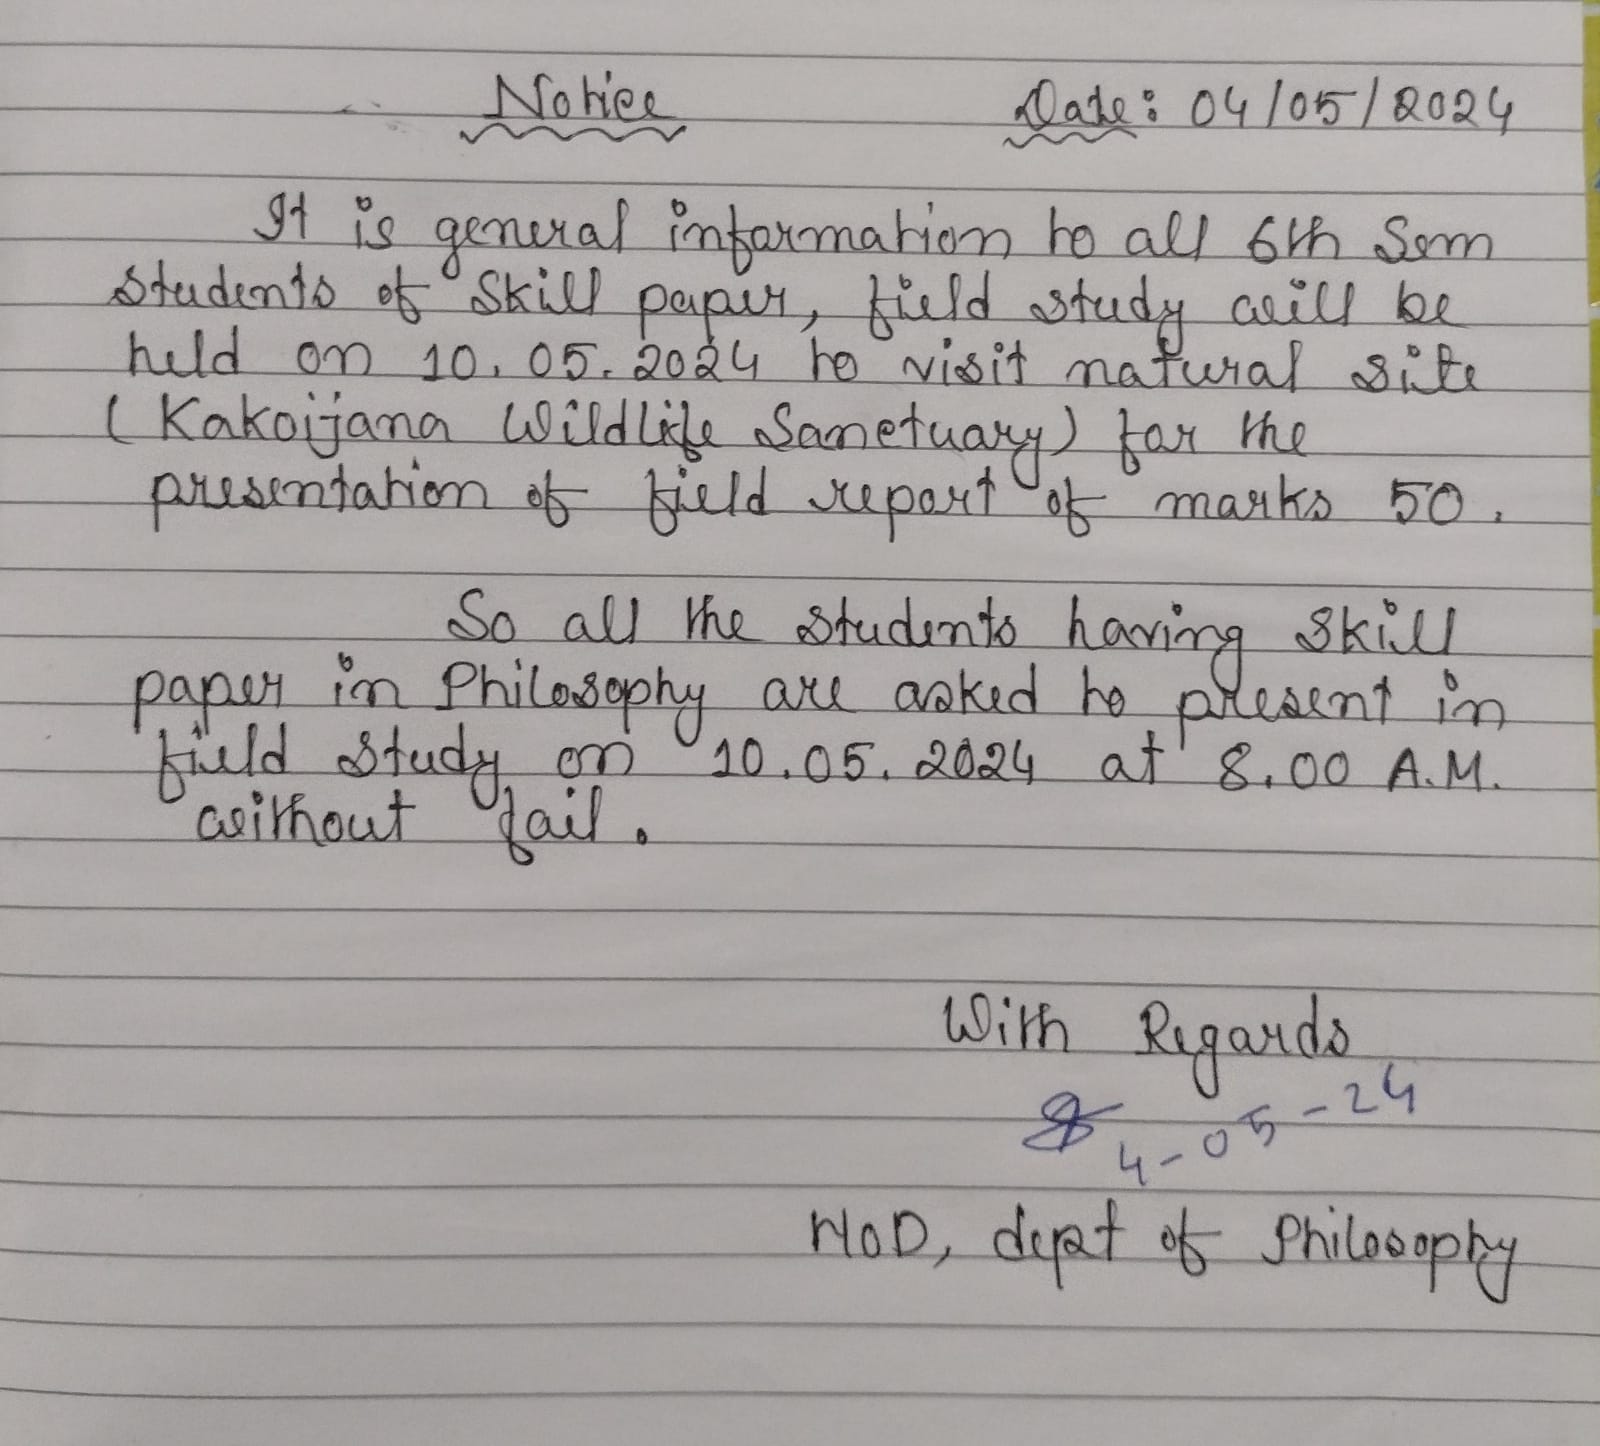 Notice Date: 04/05/2024
It is general information to all 6th Sem
students of Skill paper, field study will be
held on 10.05.2024 to visit natural site
(Kakoijana Wildlife Sanctuary) for the
presentation of field report of marks 50.
So all the students having Skill
paper in Philosophy are asked to present in
field study on 10.05.2024 at 8.00 A.M.
without fail.
With Regards
4-05-24
HOD, dept of Philosophy